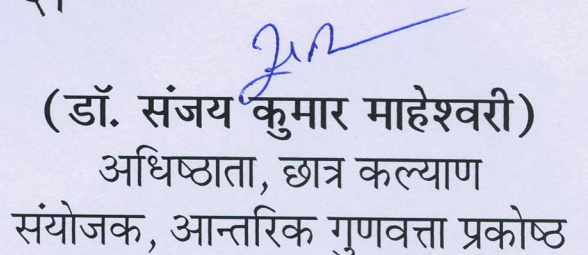 (डॉ. संजय कुमार माहेश्वरी)
अधिष्ठाता, छात्र कल्याण
संयोजक, आन्तरिक गुणवत्ता प्रकोष्ठ